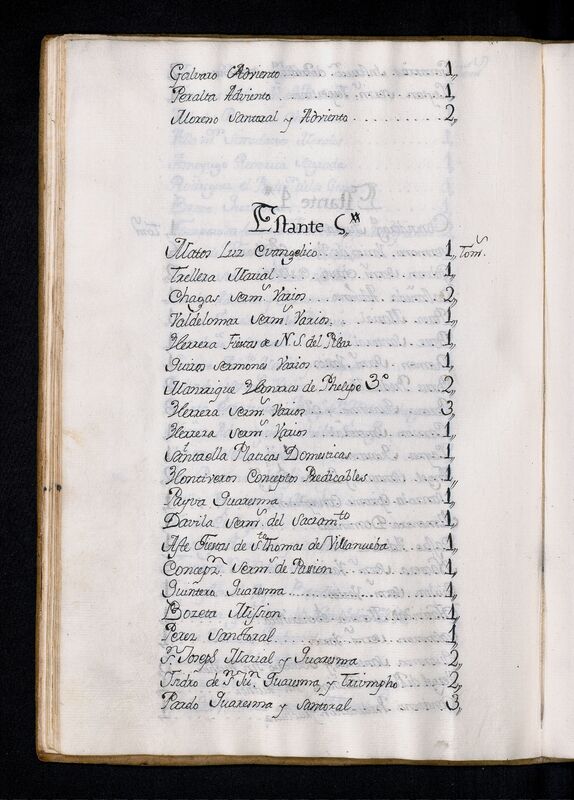 Galvaro Adviento 1,,
Peralta Adviento 1,,
Moreno Santoral y Adviento .......... 2,,
Estante 5.
Matos Luz Evangelico 1,, Tom.s
Trellera Marial 1,,
Chagas Serm.s Varios 2,,
Valdelomar Serm.s Varios 1,,
Herrera Fiestas de N. S. del Pilar 1,,
Quiros Sermones Varios 1,,
Manrrique Honrras de Phelipe 3.º 2,,
Herrera Serm.s Varios 3,,
Herrera Serm.s Varios 1,,
Santaella Platicas Domesticas 1,,
Hontiveros Conceptos Predicables 1,,
Payva Quaresma 1,,
Davila Serm.s del Sacram.to 1,,
Aste Fiestas de S.to Thomas de Villanueba 1,,
Concepn. Serm.s de Passion 1,,
Quintero Quaresma 1,,
Bozeta Mission 1,,
Perez Sanctoral 1,,
Sn. Joseph Marial y Quaresma 2,,
Isidro de Sn. Jun. Quaresma, y Triumpho 2,,
Pardo Quaresma y Santoral 3,,